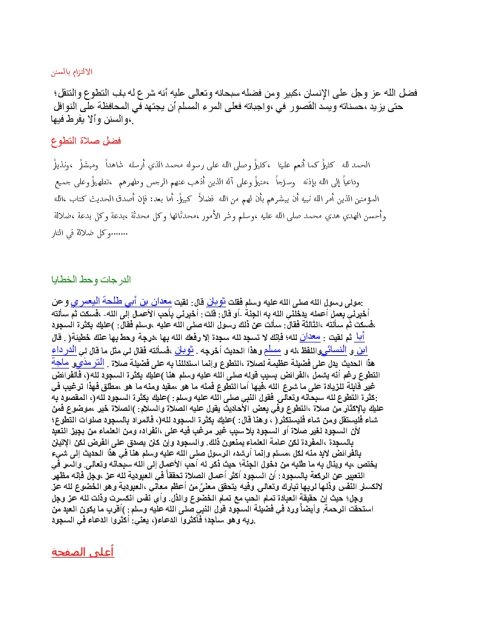 الالتزام بالسنن
فضل الله عز وجل على الإنسان ،كبير ومن فضله سبحانه وتعالى عليه أنه شرع له باب التطوع والتنفل؛
حتى يزيد ،حسناته ويسد القصور في ،واجباته فعلى المرء المسلم أن يجتهد في المحافظة على النوافل
،والسنن وألا يفرط فيها.
فضل صلاة التطوع
الحمد لله كثيراً كما أنعم علينا ،كثيراً وصلى الله على رسوله محمد الذي أرسله شاهداً ومبشراً ،ونذيراً
وداعياً إلى الله بإذنه وسراجاً ،منيراً وعلى آله الذين أذهب عنهم الرجس وطهرهم ،تطهيراً وعلى جميع
المؤمنين الذين أمر الله نبيه أن يبشرهم بأن لهم من الله فضلاً كبيراً. أما بعد: فإن أصدق الحديث كتاب ،الله
وأحسن الهدي هدي محمد صلى الله عليه ،وسلم وشر الأمور ،محدثاتها وكل محدثة ،بدعة وكل بدعة ،ضلالة
وكل ضلالة في النار.......
الدرجات وحط الخطايا
مولى رسول الله صلى الله عليه وسلم فقلت ثوبان قال: لقيت معدان بن أبي طلحة اليعمري وعن:
أخبرني بعمل أعمله يدخلني الله به الجنة -أو قال: قلت: أخبرني بأحب الأعمال إلى الله-، فسكت ثم سألته
،فسكت ثم سألته ،الثالثة فقال: سألت عن ذلك رسول الله صلى الله عليه ،وسلم فقال: )عليك بكثرة السجود
أبا ثم لقيت : معدان لله؛ فإنك لا تسجد لله سجدة إلا رفعك الله بها ،درجة وحط بها عنك خطيئة(. قال
ابن و النسائي واللفظ ،له و مسلم وهذا الحديث أخرجه . ثوبان ،فسألته فقال لي مثل ما قال لي الدرداء
هذا الحديث يدل على فضيلة عظيمة لصلاة ،التطوع وإنما استدللنا به على فضيلة صلاة . الترمذي و ماجة
التطوع رغم أنه يشمل ،الفرائض بسبب قوله صلى الله عليه وسلم هنا )عليك بكثرة السجود لله(، فالفرائض
غير قابلة للزيادة على ما شرع الله ،فيها أما التطوع فمنه ما هو ،مقيد ومنه ما هو ،مطلق فهذا ترغيب في
كثرة التطوع لله سبحانه وتعالى. فقول النبي صلى الله عليه وسلم :)عليك بكثرة السجود لله(، المقصود به:
عليك بالإكثار من صلاة ،التطوع وفي بعض الأحاديث يقول عليه الصلاة والسلام: )الصلاة خير ،موضوع فمن
شاء فليستقل ومن شاء فليستكثر( ، وهنا قال: )عليك بكثرة السجود لله(، فالمراد بالسجود صلوات التطوع؛
لأن السجود لغير صلاة أو السجود بلا سبب غير مرغب فيه على ،انفراده ومن العلماء من يجيز التعبد
بالسجدة ،المفردة لكن عامة العلماء يمنعون ذلك. والسجود وإن كان يصدق على الفرض لكن الإتيان
بالفرائض لابد منه لكل ،مسلم وإنما أرشده الرسول صلى الله عليه وسلم هنا في هذا الحديث إلى شيء
يختص ،به وينال به ما طلبه من دخول الجنة؛ حيث ذكر له أحب الأعمال إلى الله سبحانه وتعالى. والسر في
التعبير عن الركعة بالسجود: أن السجود أكثر أعمال الصلاة تحققاً في العبودية لله عز ،وجل فإنه مظهر
لانكسار النفس وذلها لربها تبارك وتعالى. وفيه يتحقق معنىً من أعظم معاني ،العبودية وهو الخضوع لله عز
وجل؛ حيث إن حقيقة العبادة تمام الحب مع تمام الخضوع والذل. وأي نفس انكسرت وذلت لله عز وجل
استحقت الرحمة. وأيضاً ورد في فضيلة السجود قول النبي صلى الله عليه وسلم : )أقرب ما يكون العبد من
ربه وهو ساجد؛ فأكثروا الدعاء(، يعني: أكثروا الدعاء في السجود.
أعلى الصفحة